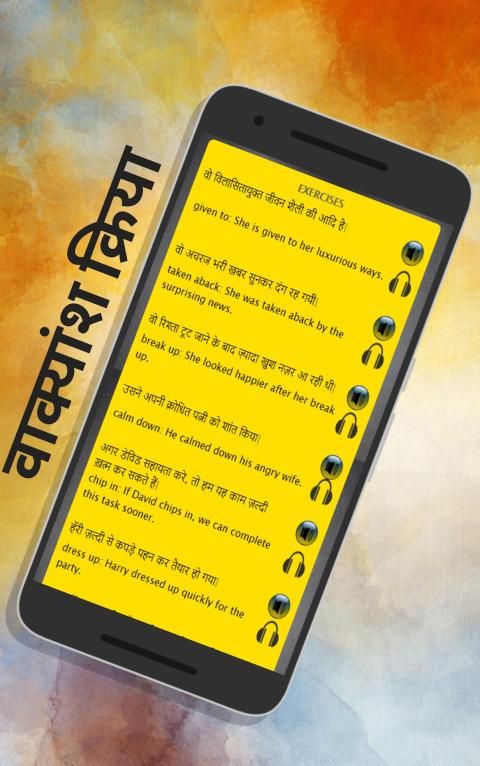 वाक्यांश क्रिया
EXERCISES
वो विलासितायुक्त जीवन शैली की आदि है|
given to: She is given to her luxurious ways.
वो अचरज भरी खबर सुनकर दंग रह गयी|
taken aback: She was taken aback by the
surprising news.
वो रिश्ता टूट जाने के बाद ज़्यादा खुश नज़र आ रही थी|
break up: She looked happier after her break
up.
उसने अपनी क्रोधित पत्नी को शांत किया|
calm down: He calmed down his angry wife.
अगर डेविड सहायता करे, तो हम यह काम ज़ल्दी
ख़त्म कर सकते हैं|
chip in: If David chips in, we can complete
this task sooner.
हॅरी ज़ल्दी से कपड़े पहन कर तैयार हो गया|
dress up: Harry dressed up quickly for the
party.